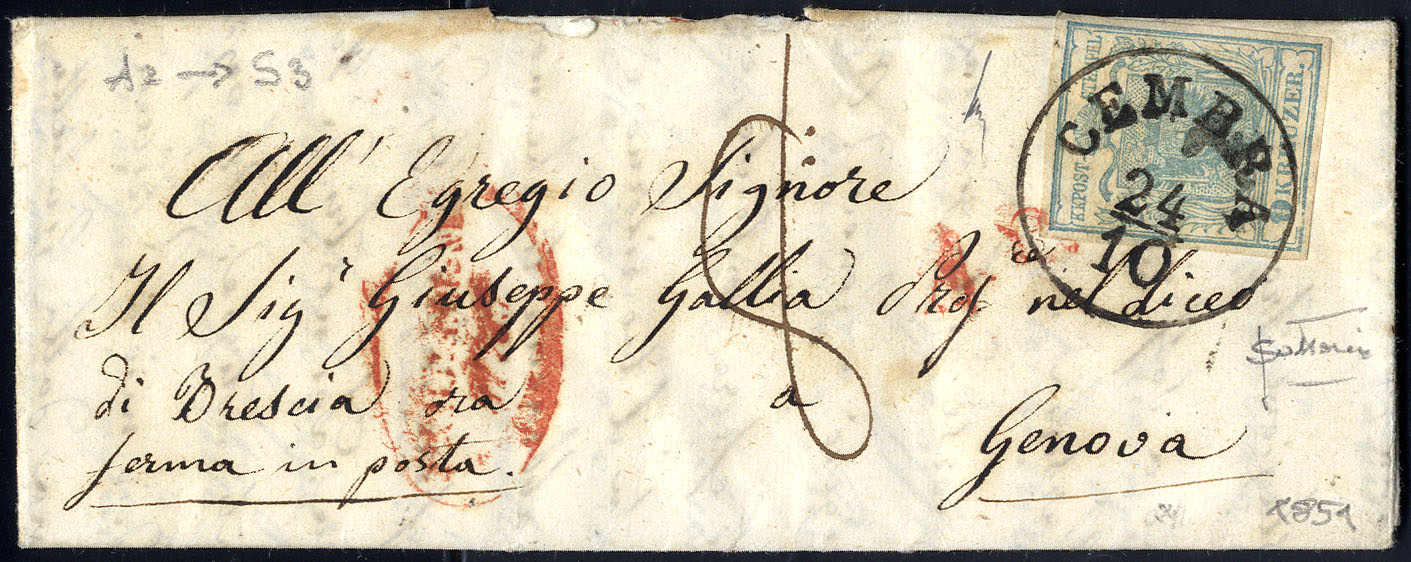 A2 → S3
KKPOST-STEMPEL
9 KREUZER.
CEMBRA
24
10
All' Egregio Signore
Il Sigʳ Giuseppe Gallia Prof. nel Liceo
di Brescia ora a Genova
ferma in posta.
1851